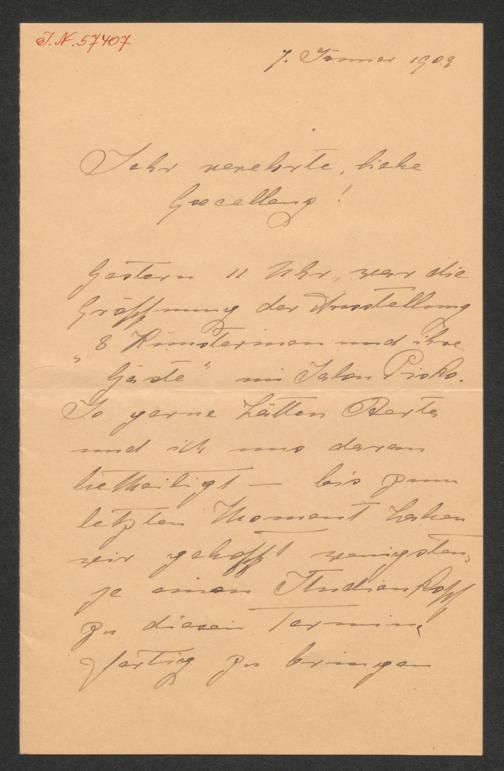 J.N. 57407
7. Jänner 1909
Sehr verehrte, liebe
Excellenz!
Gestern 11 Uhr, war die
Eröffnung der Ausstellung
"8 Künstlerinnen und ihre
Gäste" im Salon Pisko.
So gerne hätten Berta
und ich uns daran
betheiligt — bis zum
letzten Moment haben
wir gehofft wenigstens
je einen Studienkopf
zu diesem Termine
fertig zu bringen